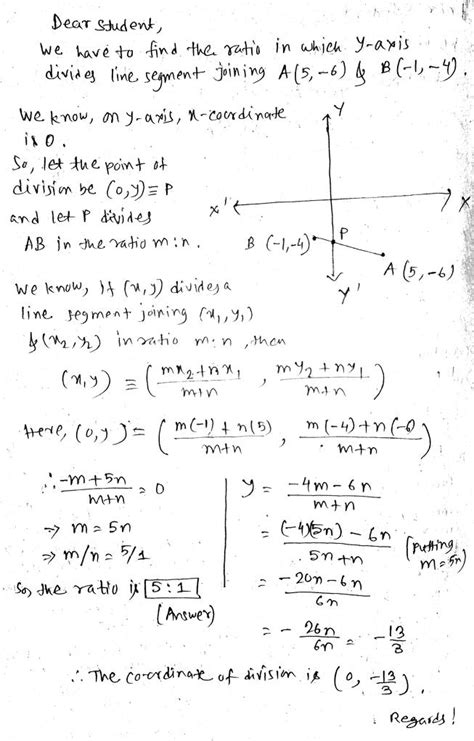 Dear Student,
We have to find the ratio in which Y-axis
divides line segment joining A(5,-6) & B(-1,-4).
We know, on y-axis, x-coordinate
is 0.
So, let the point of
division be (0,y)≡P
and let P divides
AB in the ratio m:n.
Y
X'
X
B (-1,-4)
P
A (5,-6)
Y'
We know, if (x,y) divides a
line segment joining (x₁,y₁)
& (x₂,y₂) in ratio m:n, then
(x,y) ≡ ( mx₂+nx₁ / m+n , my₂+ny₁ / m+n )
Here, (0,y) = ( m(-1)+n(5) / m+n , m(-4)+n(-6) / m+n )
∴ -m+5n / m+n = 0
⇒ m=5n
⇒ m/n = 5/1
So, the ratio is 5:1
(Answer)
y = -4m-6n / m+n
= (-4)(5n) - 6n / 5n+n (putting m=5n)
= -20n-6n / 6n
= - 26n / 6n = -13 / 3
∴ The co-ordinate of division is (0, -13/3).
Regards!